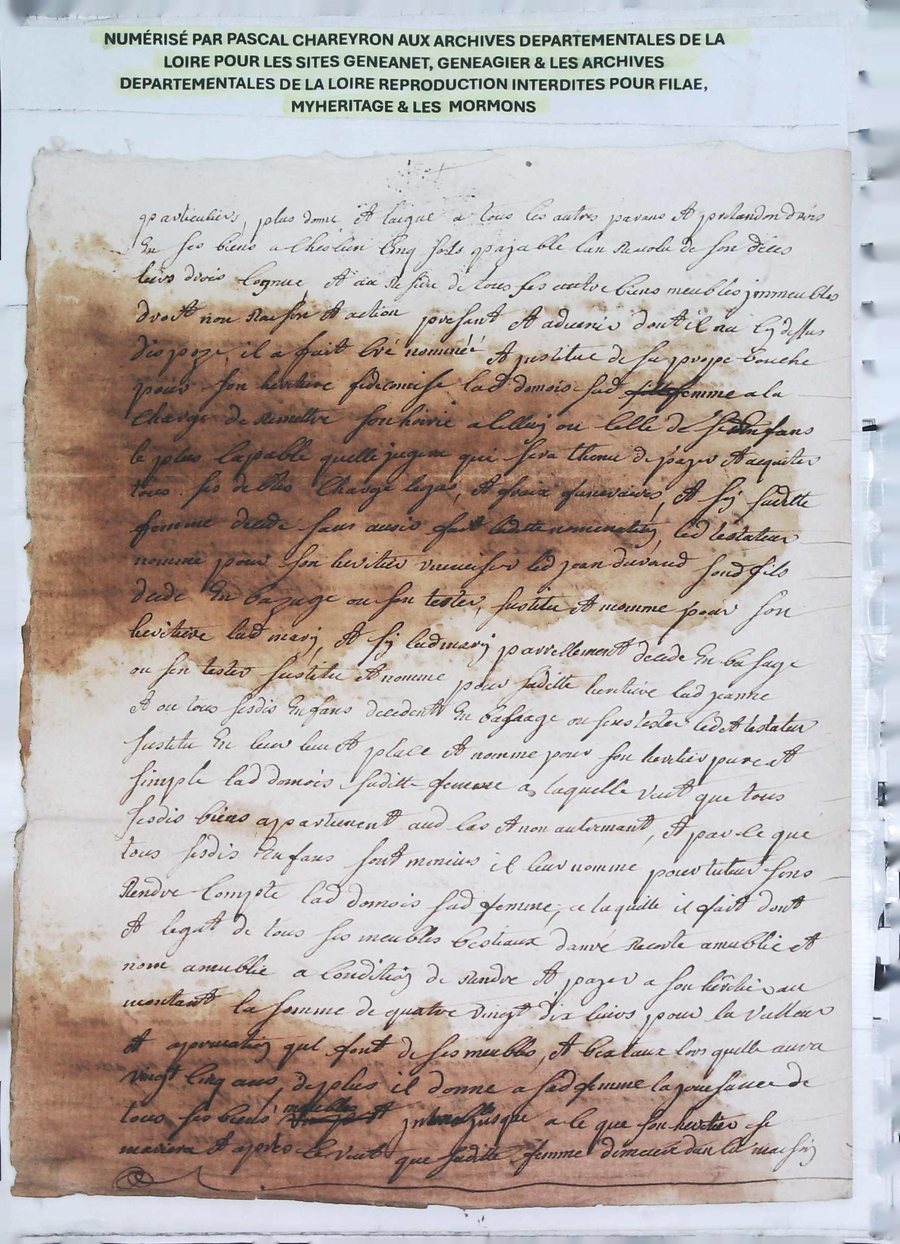 NUMÉRISÉ PAR PASCAL CHAREYRON AUX ARCHIVES DEPARTEMENTALES DE LA
LOIRE POUR LES SITES GENEANET, GENEAGIER & LES ARCHIVES
DEPARTEMENTALES DE LA LOIRE REPRODUCTION INTERDITES POUR FILAE,
MYHERITAGE & LES MORMONS
particuliers, plus donne et laigue a tous les autres parans et pretandon drois
En ses biens a Chescun Cinq sols payable lan de son deces
leurs drois Cognue, et au Residu de tous ses autre biens meubles immeubles
droit non Raison et action presant et advenir dont il na Cy dessus
dispoze, il a fait Cré nommée et institue de sa propre bouche
pour son heretiere fideicomise lad domois sad femme a la
Charge de Remettre son hoirie a Celluy ou Celle de ses Enfans
le plus Capable quelle jugera qui sera thenu de payer et acquiter
tous ses debtes Charge legas, et fraix funeraires, et sy saditte
femme decede sans avoir fait laditte nomination, led testateur
nomme pour son heritier universer led jean durand sond fils
decede En bazage ou sen tester, sustitu et nomme pour son
heritiere lad marij, et sy lad marij parrellement decede En basage
ou sen tester sustitu et nomme pour saditte heritiere lad jeanne
et ou tous sesdis Enfans decedent En bassage ou sens tester led testateur
sustitu En leur lieu et place et nomme pour son heritier pure et
simple lad domois saditte femme a laquelle veut que tous
sesdis biens appartienent aud Cas et non autrement, et par Ce que
tous sesdis Enfans sont mineurs il leur nomme pour tuteur sens
Rendre Compte lad domois sad femme, a laquelle il fait dont
et legat de tous ses meubles bestiaux danré Recorte amublié et
nom amublié a Condition de Rendre et payer a son heritier au
montant la somme de quatre vingt dix livres pour la valleur
et apreciation quil font de ses meubles, et bestaux lors quelle aura
vingt Cinq ans, de plus il donne a sad femme la jouisance de
tous ses biens meubles jusque a Ce que son heritier se
mariera et après Ce veut que saditte femme demeure dans la maison